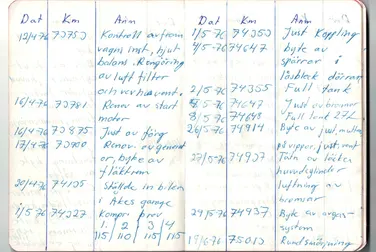 Dat Km Anm
12/4-76 70750 Kontroll av fram
vagns inst, hjul
balans. Rengöring
av luft filter
och vevhusvent.
16/4-76 70781 Renov av start
motor
16/4-76 70875 Just av förg
17/4-76 70900 Renov. av generat
or, byte av
fläktrem
20/4-76 Ställde in bilen
i Åkes garage
1/5-76 74327 Kompr prov
1. 2 3 4
115 110 115 115
Dat Km Anm
1/5-76 74350 Just Koppling
4/5-76 74647 byte av
spärrar i
låsbleck dörrar
2/5-76 74355 Full tank
74647 Just av bromsar
8/5-76 74648 Full tank 27L
26/5-76 74914 Byte av just.mutter
på vipper, just. vent
27/5-76 74937 Tätn av läckor
huvudcylinder
luftning av
bromsar
29/5-76 74937 Byte av avgas-
system
75013 Rundsmörjning